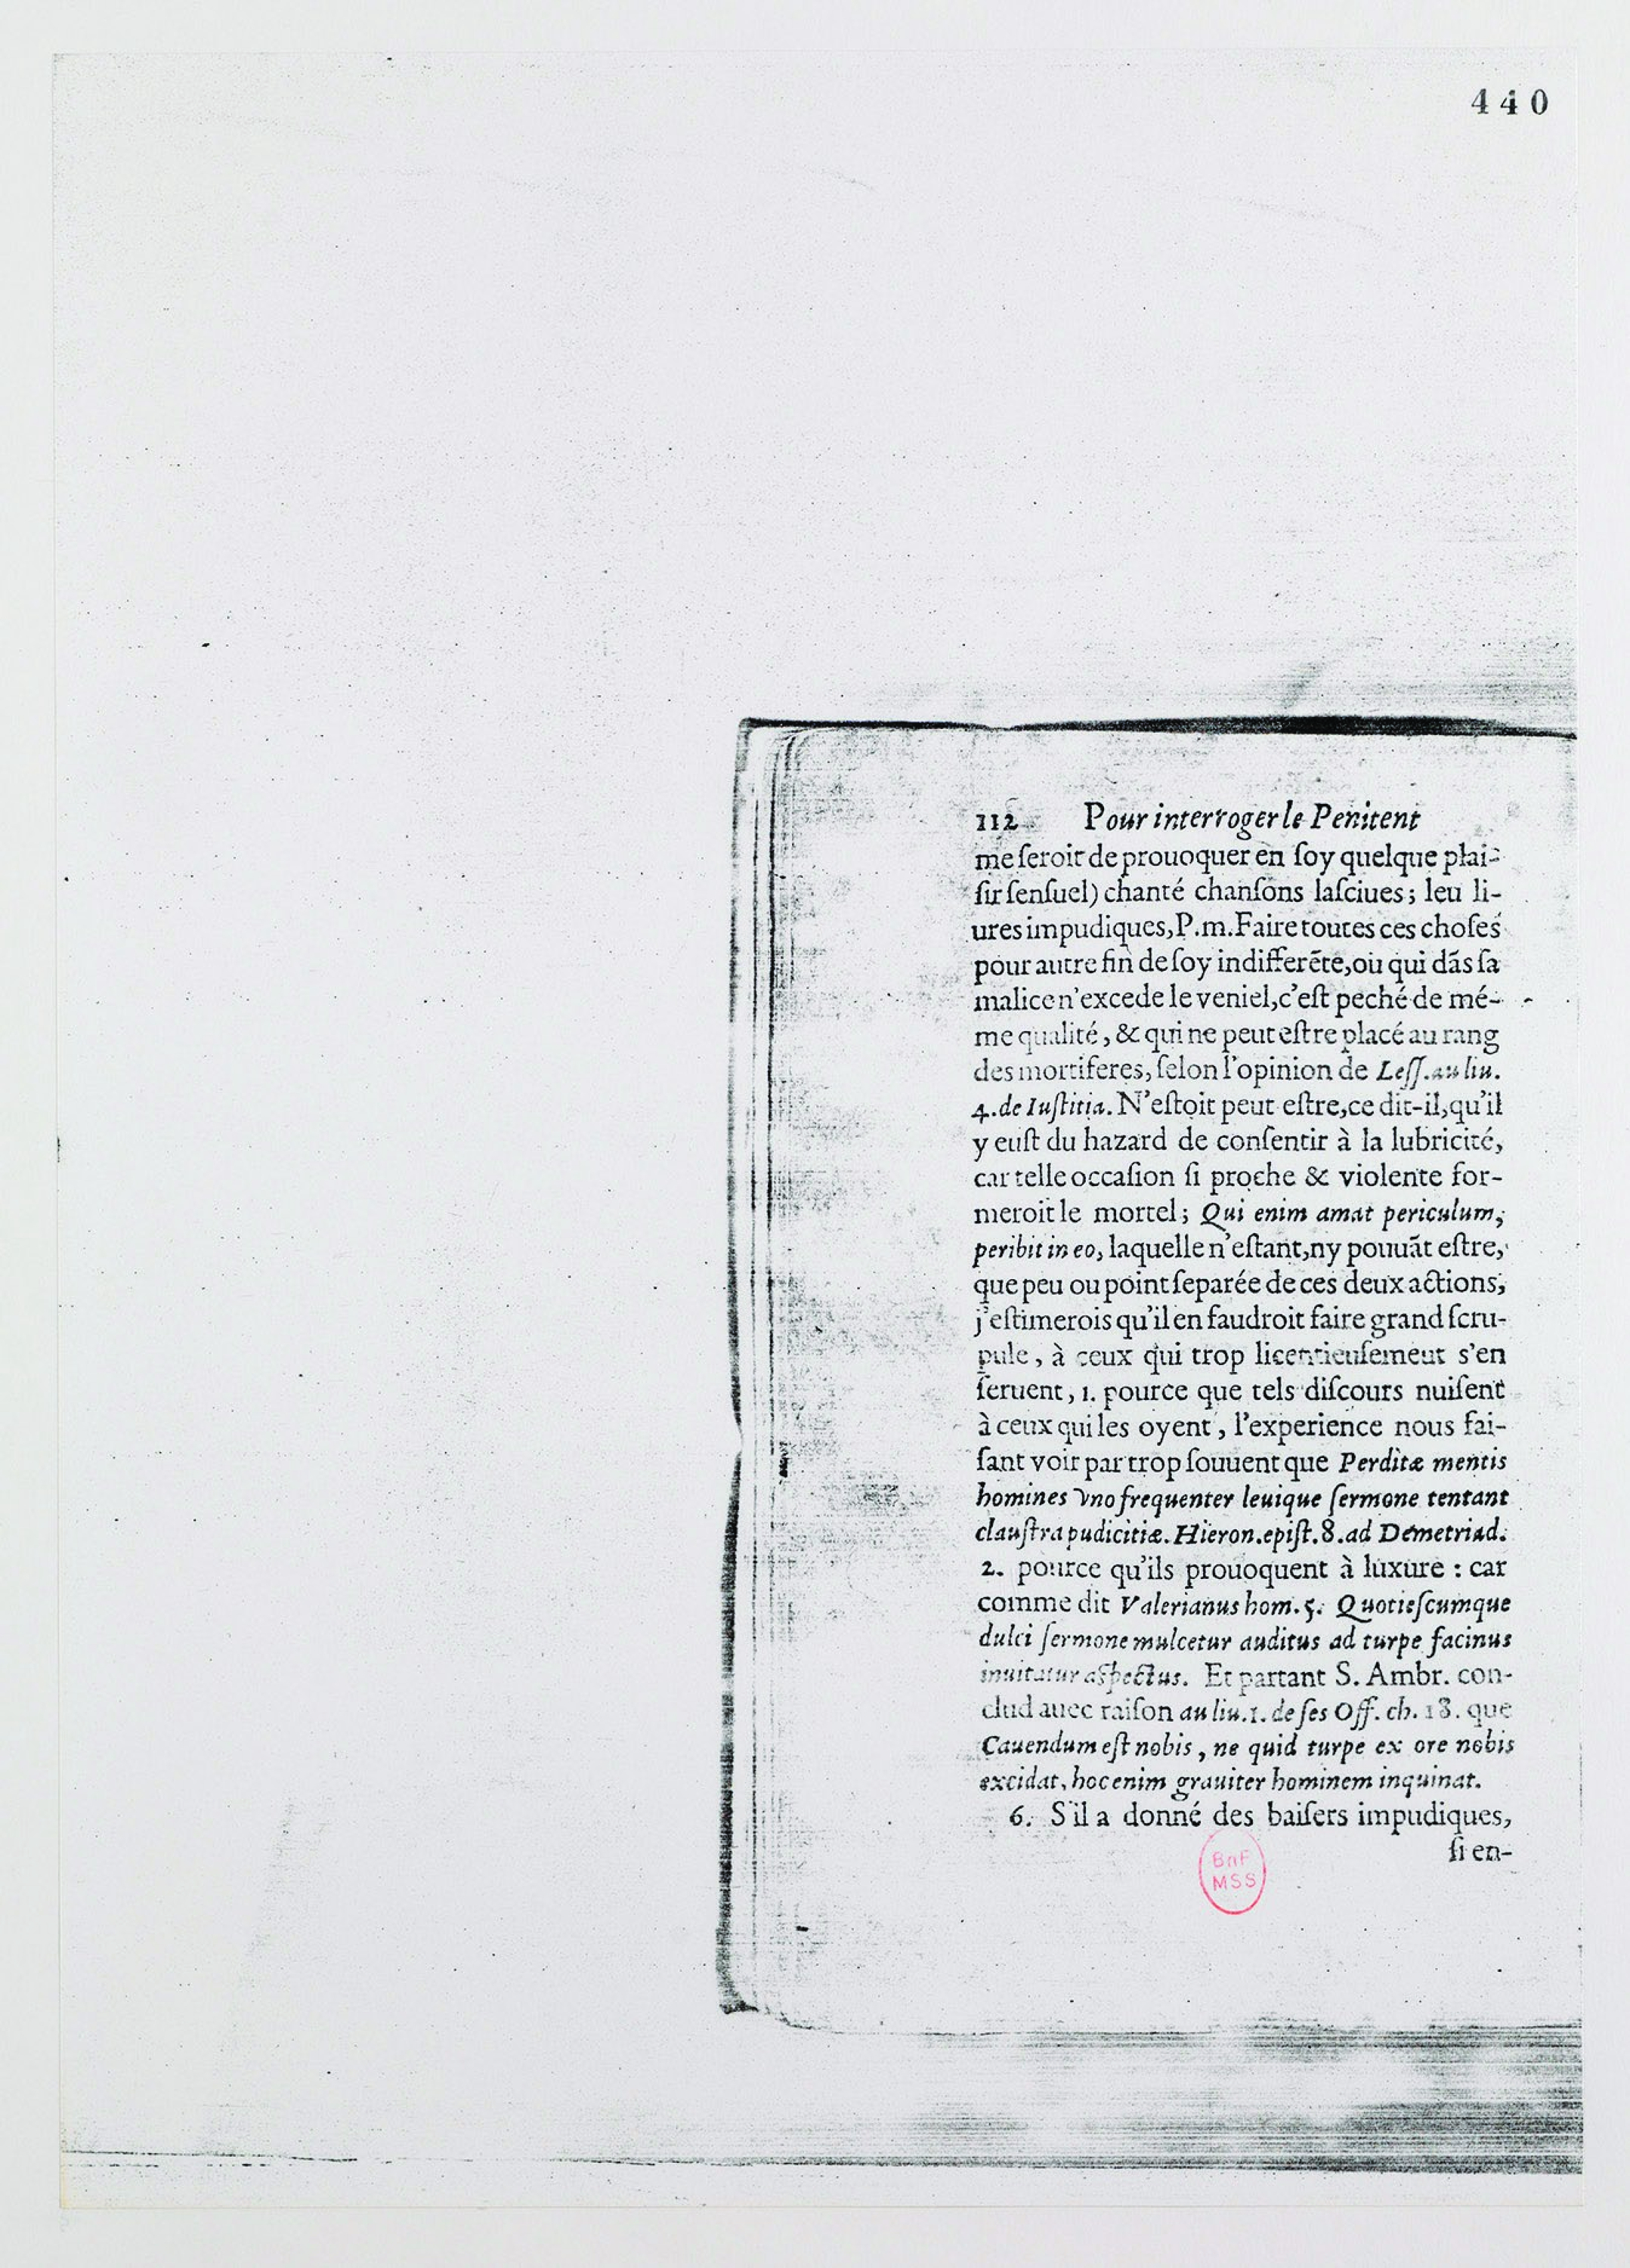 440
112 Pour interroger le Penitent
me ſeroit de prouoquer en ſoy quelque plai-
ſir ſenſuel) chanté chanſons laſciues; leu li-
ures impudiques, P.m. Faire toutes ces choſes
pour autre fin de ſoy indifferẽte, ou qui dãs ſa
malice n'excede le veniel, c'eſt peché de mé-
me qualité, & qui ne peut eſtre placé au rang
des mortiferes, ſelon l'opinion de Leſſ. au liu.
4. de Iuſtitia. N'eſtoit peut eſtre, ce dit-il, qu'il
y euſt du hazard de conſentir à la lubricité,
car telle occaſion ſi proche & violente for-
meroit le mortel; Qui enim amat periculum,
peribit in eo, laquelle n'eſtant, ny pouuãt eſtre,
que peu ou point ſeparée de ces deux actions,
j'eſtimerois qu'il en faudroit faire grand ſcru-
pule, à ceux qui trop licentieuſement s'en
ſeruent, 1. pource que tels diſcours nuiſent
à ceux qui les oyent, l'experience nous fai-
ſant voir par trop ſouuent que Perditæ mentis
homines vno frequenter leuique ſermone tentant
clauſtra pudicitiæ. Hieron. epiſt. 8. ad Demetriad.
2. pource qu'ils prouoquent à luxure : car
comme dit Valerianus hom. 5. Quotieſcumque
dulci ſermone mulcetur auditus ad turpe facinus
inuitatur aſpectus. Et partant S. Ambr. con-
clud auec raiſon au liu. 1. de ſes Off. ch. 18. que
Cauendum eſt nobis, ne quid turpe ex ore nobis
excidat, hoc enim grauiter hominem inquinat.
6. S'il a donné des baiſers impudiques,
ſi en-
BnF
MSS